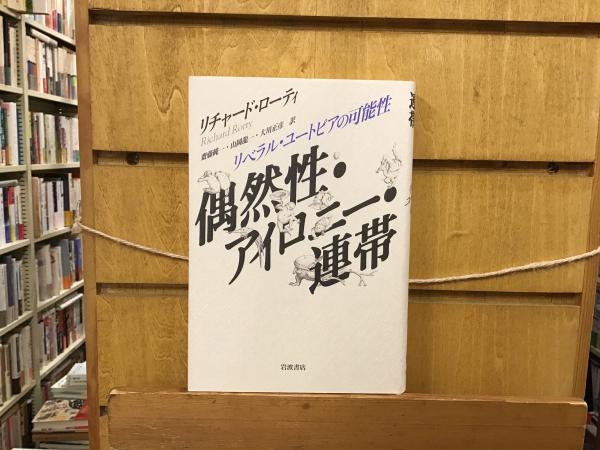 リチャード・ローティ
Richard Rorty
齋藤純一・山岡龍一・大川正彦 訳
リベラル・ユートピアの可能性
偶然性・
アイロニー・
連帯
岩波書店
連帯